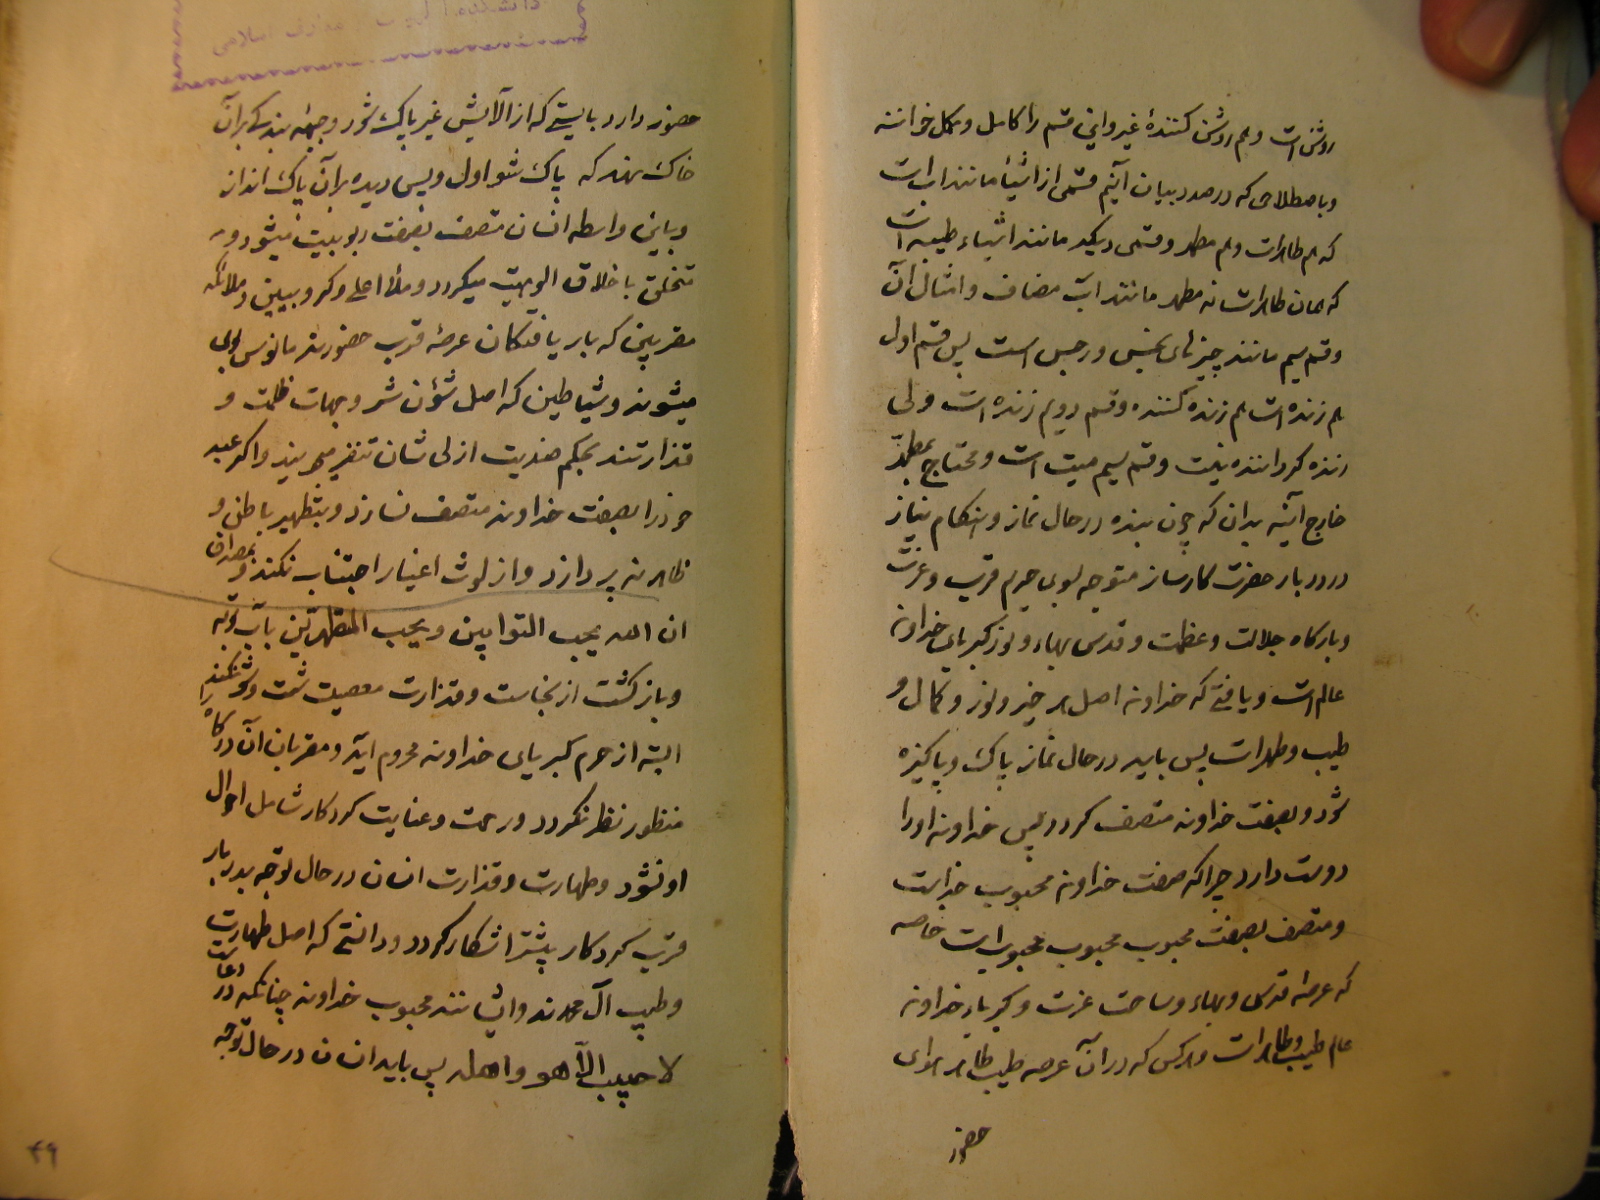 روشن است و هم روشن کنندهٔ غیر و این قسم را کامل و مکمل خوانند
و باصطلاحی که در صدد بیان آنیم قسمی از اشیأ مانند آب است
که هم طاهر است و هم مطهر و قسمی دیگر مانند اشیاء طیبه است
که همان طاهر است نه مطهر مانند آب مضاف و امثال آن
و قسم سیم مانند چیزهای نجس و رجس است پس قسم اول
هم زنده است هم زنده کننده و قسم دویم زنده است ولی
زنده گرداننده نیست و قسم سیم میت است و محتاج بمطهر
خارج آیند بدان که چون بنده در حال نماز و هنگام نیاز
در دربار حضرت کارساز متوجه بسوی حرم قرب و عزت
و بارگاه جلالت و عظمت و قدس بهاء و نور کبریای خداوند
عالم است و یافتی که خداوند اصل هر خیر و نور و کمال و
طیب و طهر است پس باید در حال نماز پاک و پاکیزه
شود و بصفت خداوند متصف گردد پس خداوند او را
دوست دارد چرا که صفت خداوند محبوب خداست
و متصف بصفت محبوب محبوب محبوب است خاصه
که عرصه قدس و بهاء و ساحت عزت و کبریاء خداوند
عالم طیب و طاهر است و هر کس که در آن عرصه طیب طاهر هوای
حضور
حضور دارد بایستی که از آلایش غیر پاک شود و جبهه بندگی بر آن
خاک نهد که پاک شو اول و پس دیده بر آن پاک انداز
و باین واسطه انسان متصف بصفت ربوبیت میشود و
متخلق باخلاق الوهیت میگردد و ملأ اعلی و کروبیین و ملائکه
مقربین که بار یافتگان عرصهٔ قرب حضورند مانوس بوی
میشوند و شیاطین که اصل شؤن شر و جهات ظلمت و
قذارتند بحکم ضدیت از لی شان تنفر میجویند و اگر عبد
خود را بصفت خداوند متصف نسازد و بتطهیر باطن و
ظاهر نپردازد و از لوث اغیار اجتناب نکند و بمصداق
ان الله یحب التوابین و یحب المتطهرین بآب توبه
و بازگشت از نجاست و قذارت معصیت شست و شو نکند
البته از حرم کبریای خداوند محروم آید و مقربان آن درگاه را
منظور نظر نگردد و رحمت و عنایت کردگار شامل احوال
او نشود و طهارت و قذارت انسان در حال توجه بدربار
قرب کردگار بیشتر آشکار گردد و دانستی که اصل طهارت
و طیب آل محمدند و ایشانند محبوب خداوند چنانکه در دعا است
لا حبیب الا هو و اهله پس باید انسان در حال توجه
۴۹